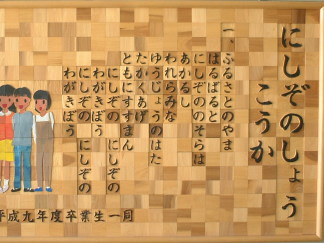 にしぞのしょう
こうか
一、ふるさとのやま
はるばると
にしぞののそらは
あかるし
われらみな
ゆうじょうのはた
たかくあげ
ともにすすまん
わがきぼう
にしぞの にしぞの
にしぞの にしぞの
わがきぼう
平成九年度卒業生一同